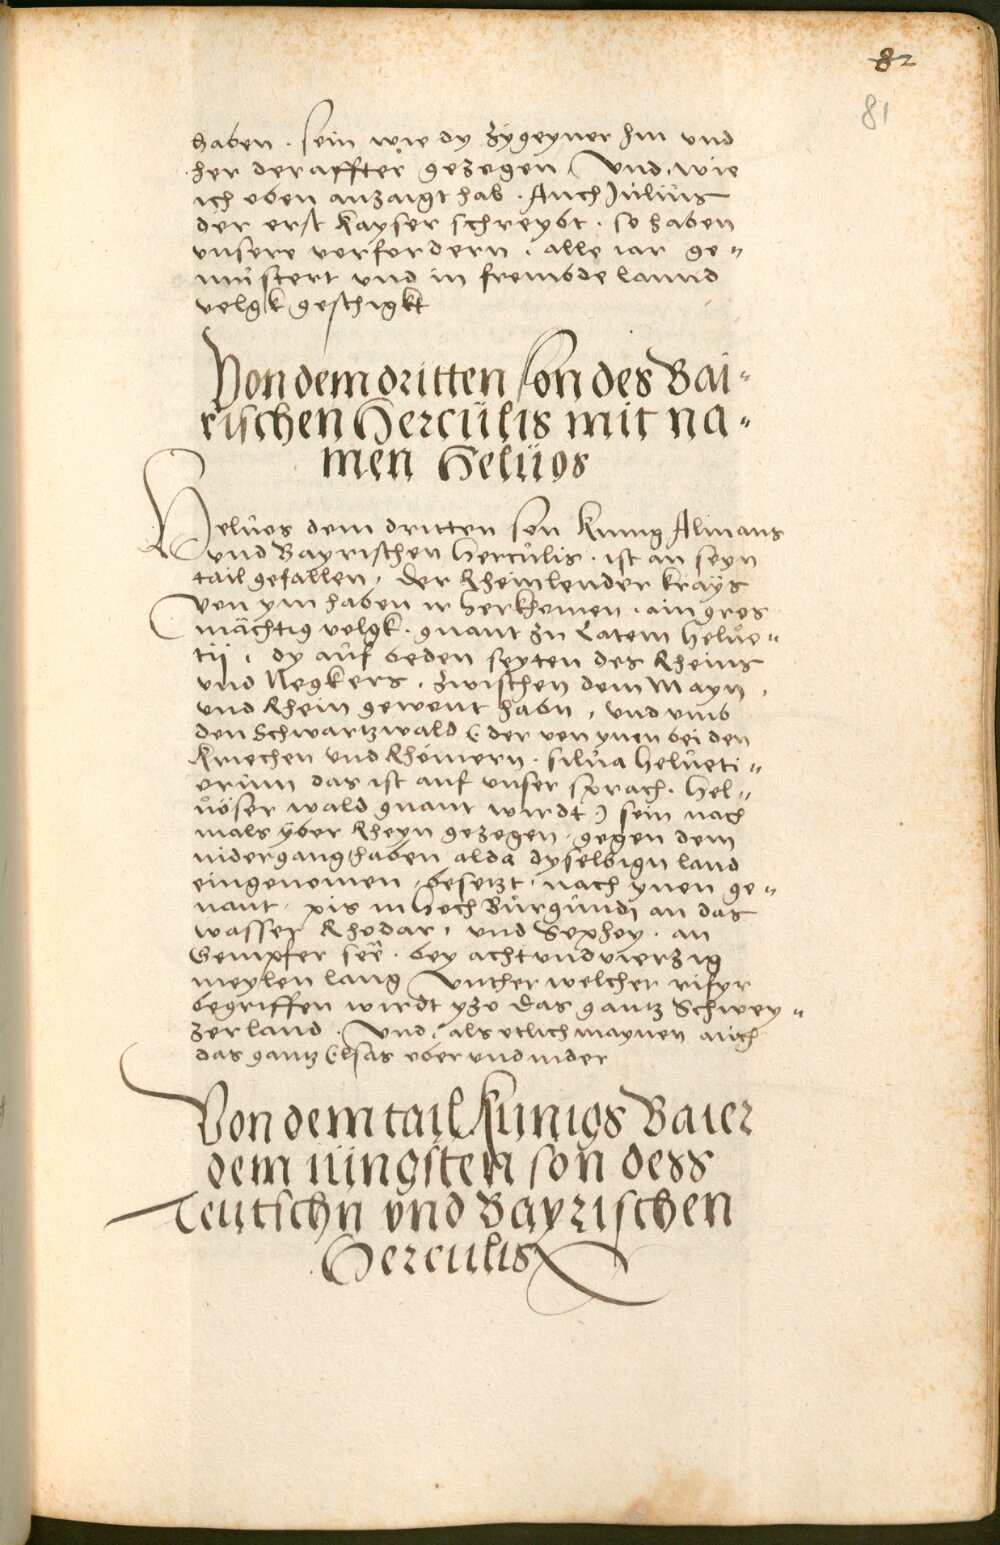 82
81
haben . sein wie dy Zygeyner hin und
her deraffter gezogen / Und, wie
ich oben anzaigt hab . Auch Júliús
der erst Kayser schreybt . so haben
unsere vorfordern . alle iar ge„
mustert und in frembde lannd
volgk geschigkt
Von dem dritten son des Bai„
rischen Hercúlis mit na„
men Helúos
Helúos dem dritten son Kúnig Almans
und Bayrischen Hercúlis . ist an seyn
tail gefallen, der Rheinlender kraÿs
von ym haben ir herkhomen . ain gros
mächtig volgk . gnant zu Latein Helúe„
tij , dy aúf beden seyten des Rheins
und Negkers . zwischen dem Mayn ,
und Rhein gewont habn , und umb
den Schwartzwald ( der von ynen bei den
Kriechen und Rhömern . silúa Helúeti„
orúm das ist auf unser sprach . Hel„
úöser wald gnant wirdt ) sein nach
mals ÿber Rheyn gezogen . gegen dem
nidergang haben alda dyselbign land
eingenomen , besetzt , nach ynen ge„
nant . pis in hoch Búrgúndj an das
wasser Rhodar , und Sophoy . an
Gempfer seë . bey acht und vierzig
meylen lang Unther welcher rifyr
begriffen wirdt yzo das gantz Schwey„
zerland . Und, als etlich maynen auch
das gantz Elsas ober und nider
Von dem tail Kúnigs Baier
dem iúngsten son dess
Teútschn und Bayrischen
Herculis